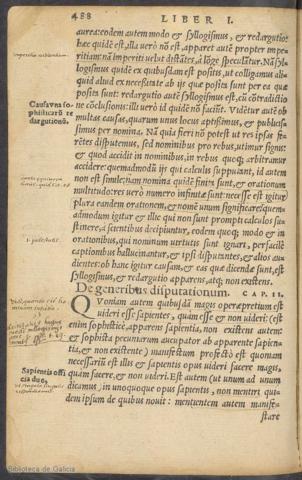 488
LIBER I.
aurea: eodem autem modo & syllogismus, & redargutio:
hæc quidē est, illa uerò nō est, apparet autē propter impe-
ritiam: nā imperiti uelut distātes, à lōgè speculātur. Nā syl-
logismus quidē ex quibusdam est positis, ut colligamus ali-
quid aliud ex necessitate ab ijs quæ posita sunt per ea quæ
posita sunt: redargutio autē syllogismus est, cū cōtradictio
ne cōclusionis: illi uerò id quidē nō faciūt. Videtur autē ob
Causa una so-
phisticarū re
dargutionū.
multas causas, quarum unus locus aptissimus, & publicis-
simus per nomina. Nā quia fieri nō potest ut res ipsas fe-
rētes disputemus, sed nominibus pro rebus, utimur signis:
& quod accidit in nominibus, in rebus quoque arbitramur
accidere: quemadmodū ijs qui calculis supputant, id autem
non est simile: nam nomina quidē finita sunt, & orationum
multitudo: res uerò numero infinitæ sunt: necesse est igitur
plura eandem orationem, & nomē unum significare: quem-
admodum igitur & illic qui non sunt prompti calculos su-
stinere, à scientibus decipiuntur, eodem quoque modo & in
orationibus, qui nominum uirtutis sunt ignari, perfacilè
captionibus hallucinantur, & ipsi disputantes, & alios au-
dientes: ob hanc igitur causam, & eas quæ dicendæ sunt, est
syllogismus, & redargutio apparens, atque non existens.
De generibus disputationum. CAP. II,
Quoniam autem quibusdā magis operæpretium est
uideri esse sapientes, quàm esse & non uideri: (est
enim sophisticè, apparens sapientia, non existens autem:
& sophista pecuniarum aucupator ab apparente sapien-
tia, & non existente) manifestum profectò est quoniam
necessariū est illis & sapientis opus uideri facere magis,
Sapientis offi
cia duo,
quàm facere, & non uideri. Est autem (ut unum ad unum
dicamus) in unoquoque opus sapientis, non mentiri qui-
dem ipsum de quibus nouit: mentientem autem manife-
stare
Biblioteca de Galicia